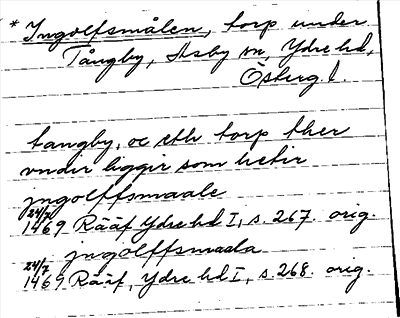 * Ingolfsmålen, torp under
Tångby, Asby sn, Ydre hd,
Österg. l.
tangby, oc eth torp ther
vndir liggir som hetir
jngolffsmaale
24/7 1469 Rääf Ydre hd I, s. 267. orig.
jngolffsmaala
24/7 1469 Rääf, Ydre hd I, s. 268. orig.